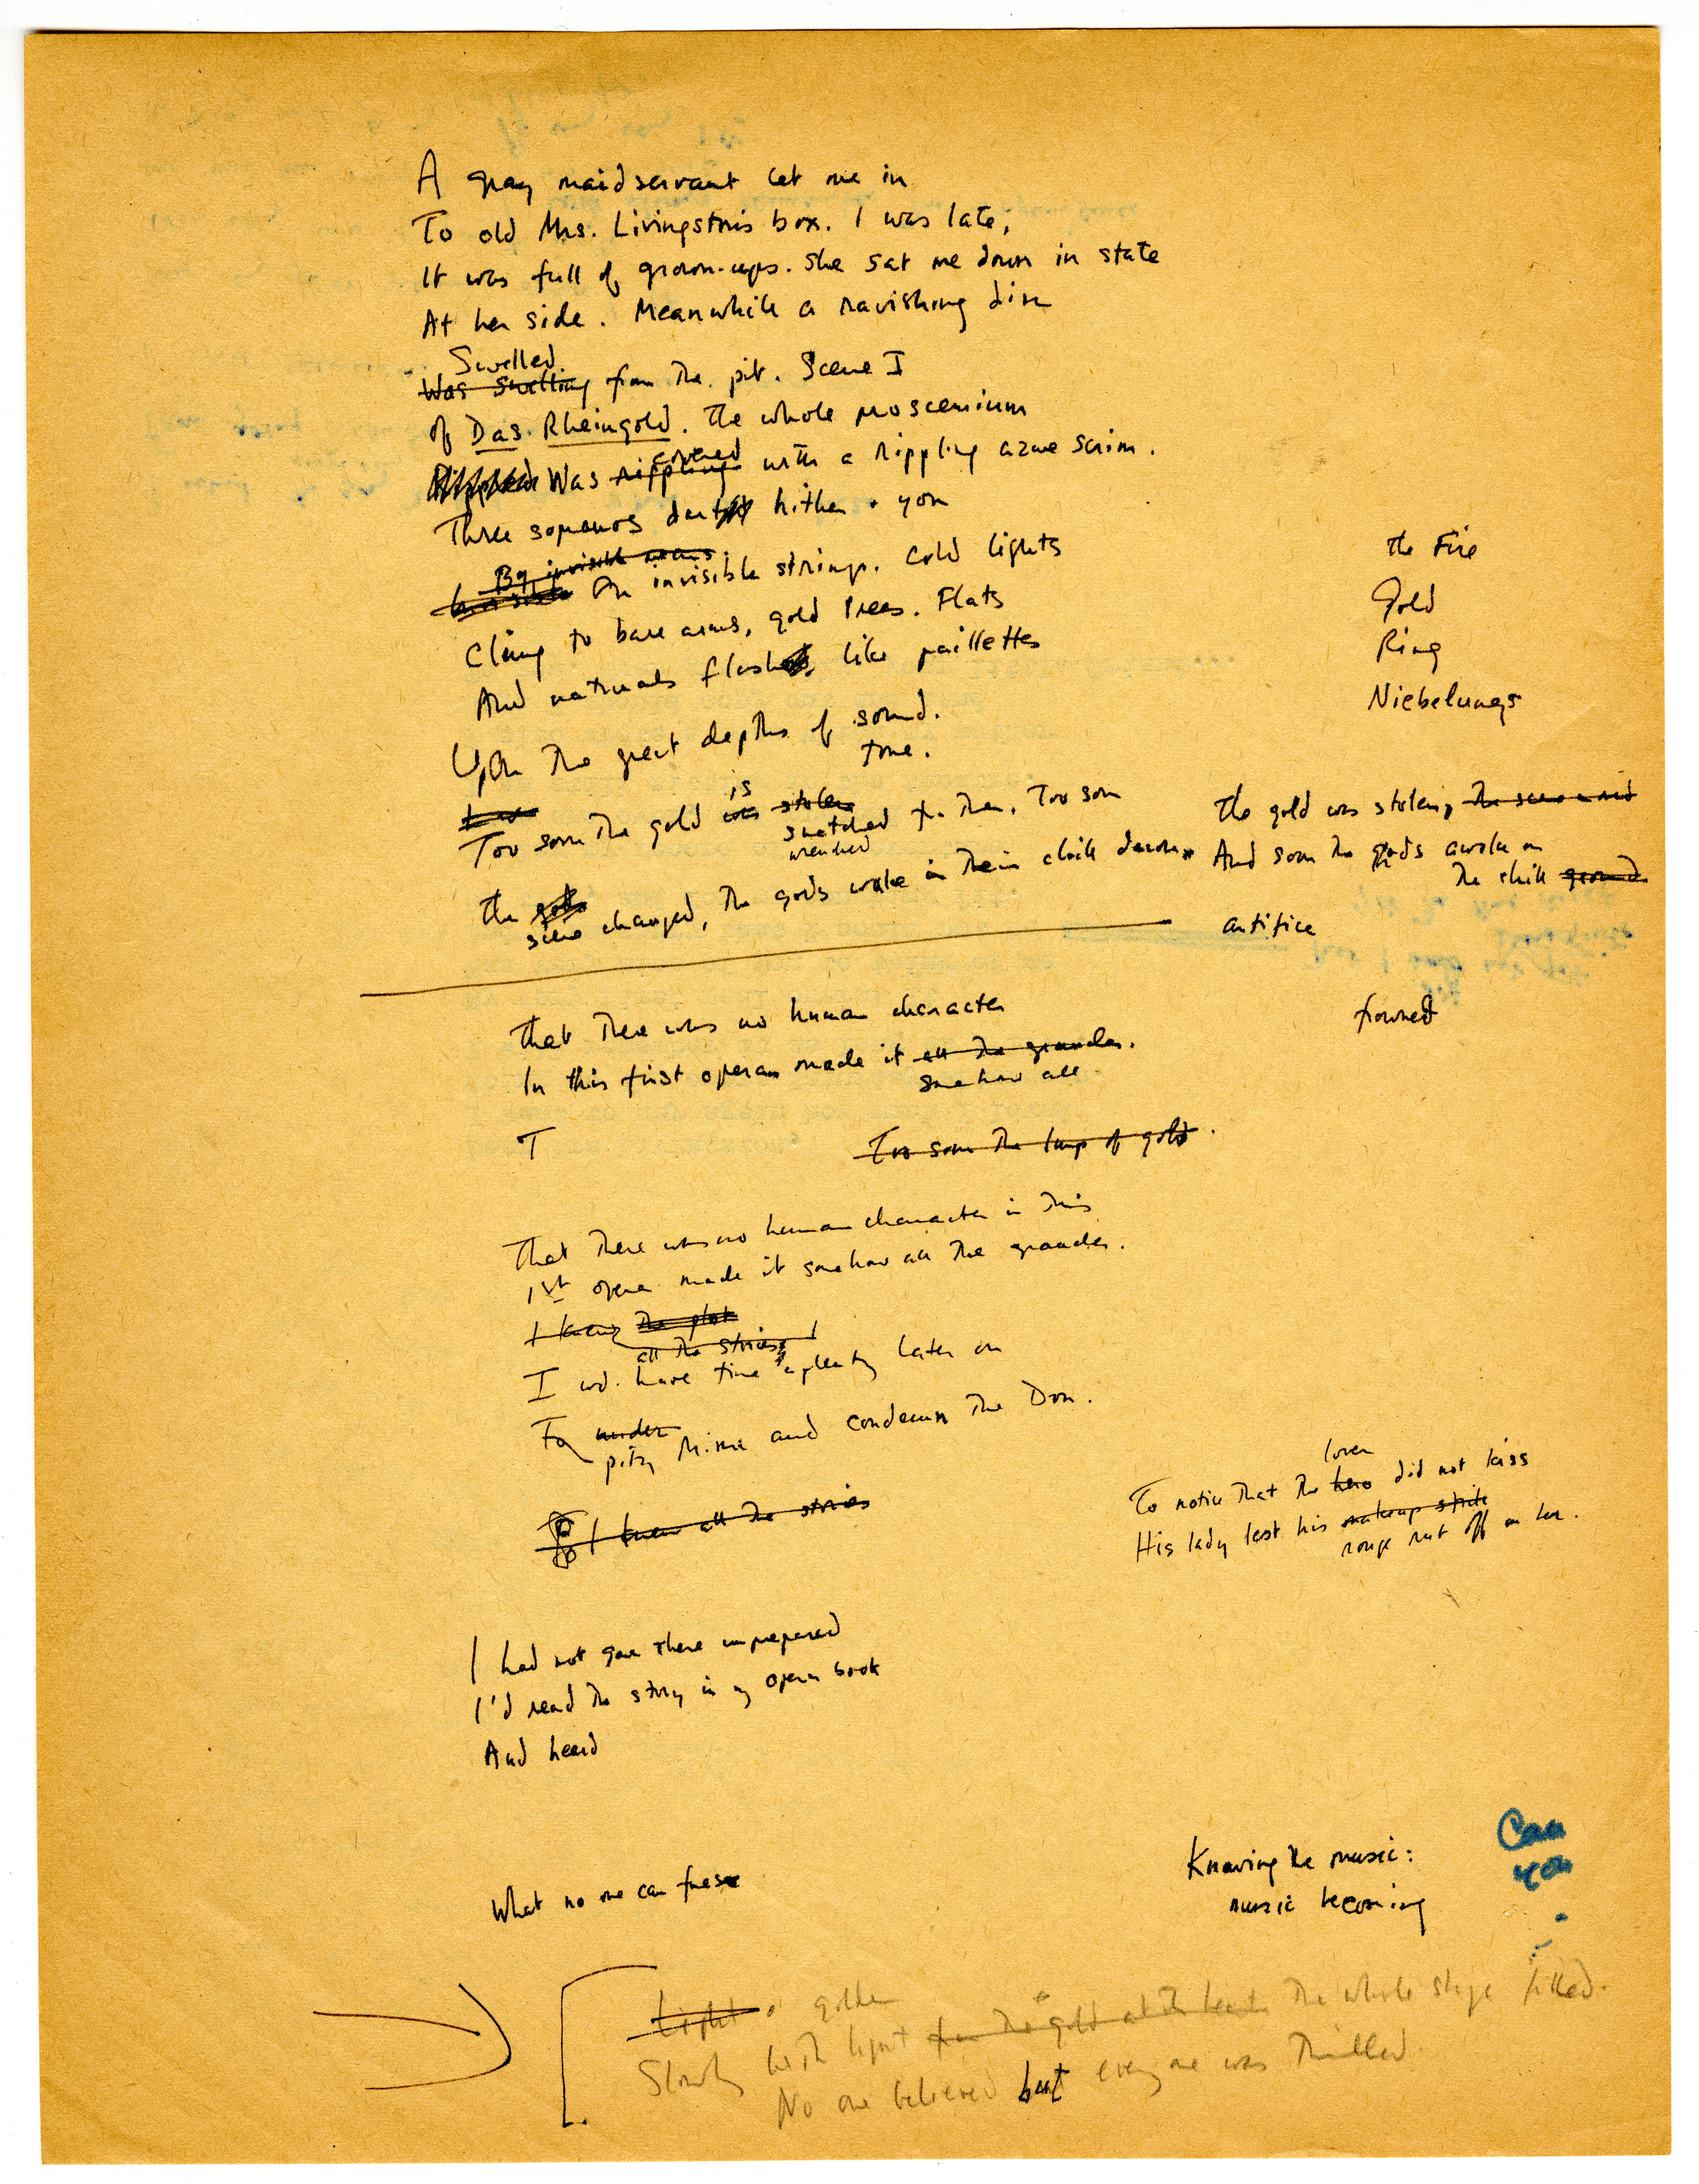 A gray maidservant let me in
To old Mrs. Livingston's box. I was late,
It was full of grown-ups. She sat me down in state
At her side. Meanwhile a ravishing din
Swelled
Was swelling from the pit. Scene I
of Das Rheingold. The whole proscenium
covered
Was rippling with a rippling azure scrim.
Three sopranos dart hither + yon
By invisible means
Invisible On invisible strings. Cold lights
Cling to bare arms, gold tresses. Flats
And naturals flash like paillettes
Upon the great depths of sound.
tone.
the Fire
Gold
Ring
Niebelungs
is
Too soon the gold was stolen
snatched fr. them. Too soon
wrenched
The
scene changed, the gods wake in their chill
The gold was stolen,
And soon the gods awoke on
the chill ground
artifice
frowned
That there was no human character
In this first opera made it all the grander.
somehow all
T
Too soon the lump of gold.
That there was no human character in this
1st opera made it somehow all the grander.
I knew the plot
all the stories
I wd. have time aplenty later on
To
pity Mimi and condemn the Don.
I knew all the stories
lover
To notice that the hero did not kiss
His lady lest his makeup
rouge rub off on her.
I had not gone there unprepared
I'd read the story in my opera book
And heard
What no one can
Knowing the music:
music becoming
Can
you
Light golden
Slowly with light from the gold at its heart the whole stage filled.
No one believed but everyone was thrilled